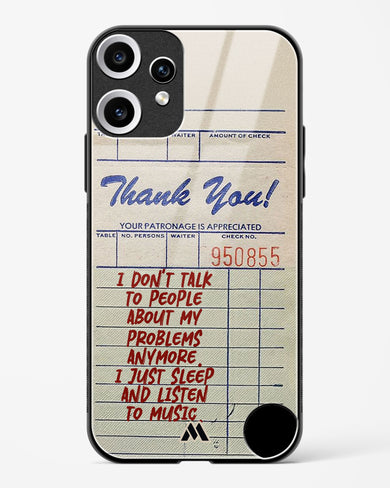 WAITER
AMOUNT OF CHECK
Thank You!
YOUR PATRONAGE IS APPRECIATED
TABLE NO. PERSONS WAITER CHECK NO.
950855
I DON'T TALK
TO PEOPLE
ABOUT MY
PROBLEMS
ANYMORE.
I JUST SLEEP
AND LISTEN
TO MUSIC